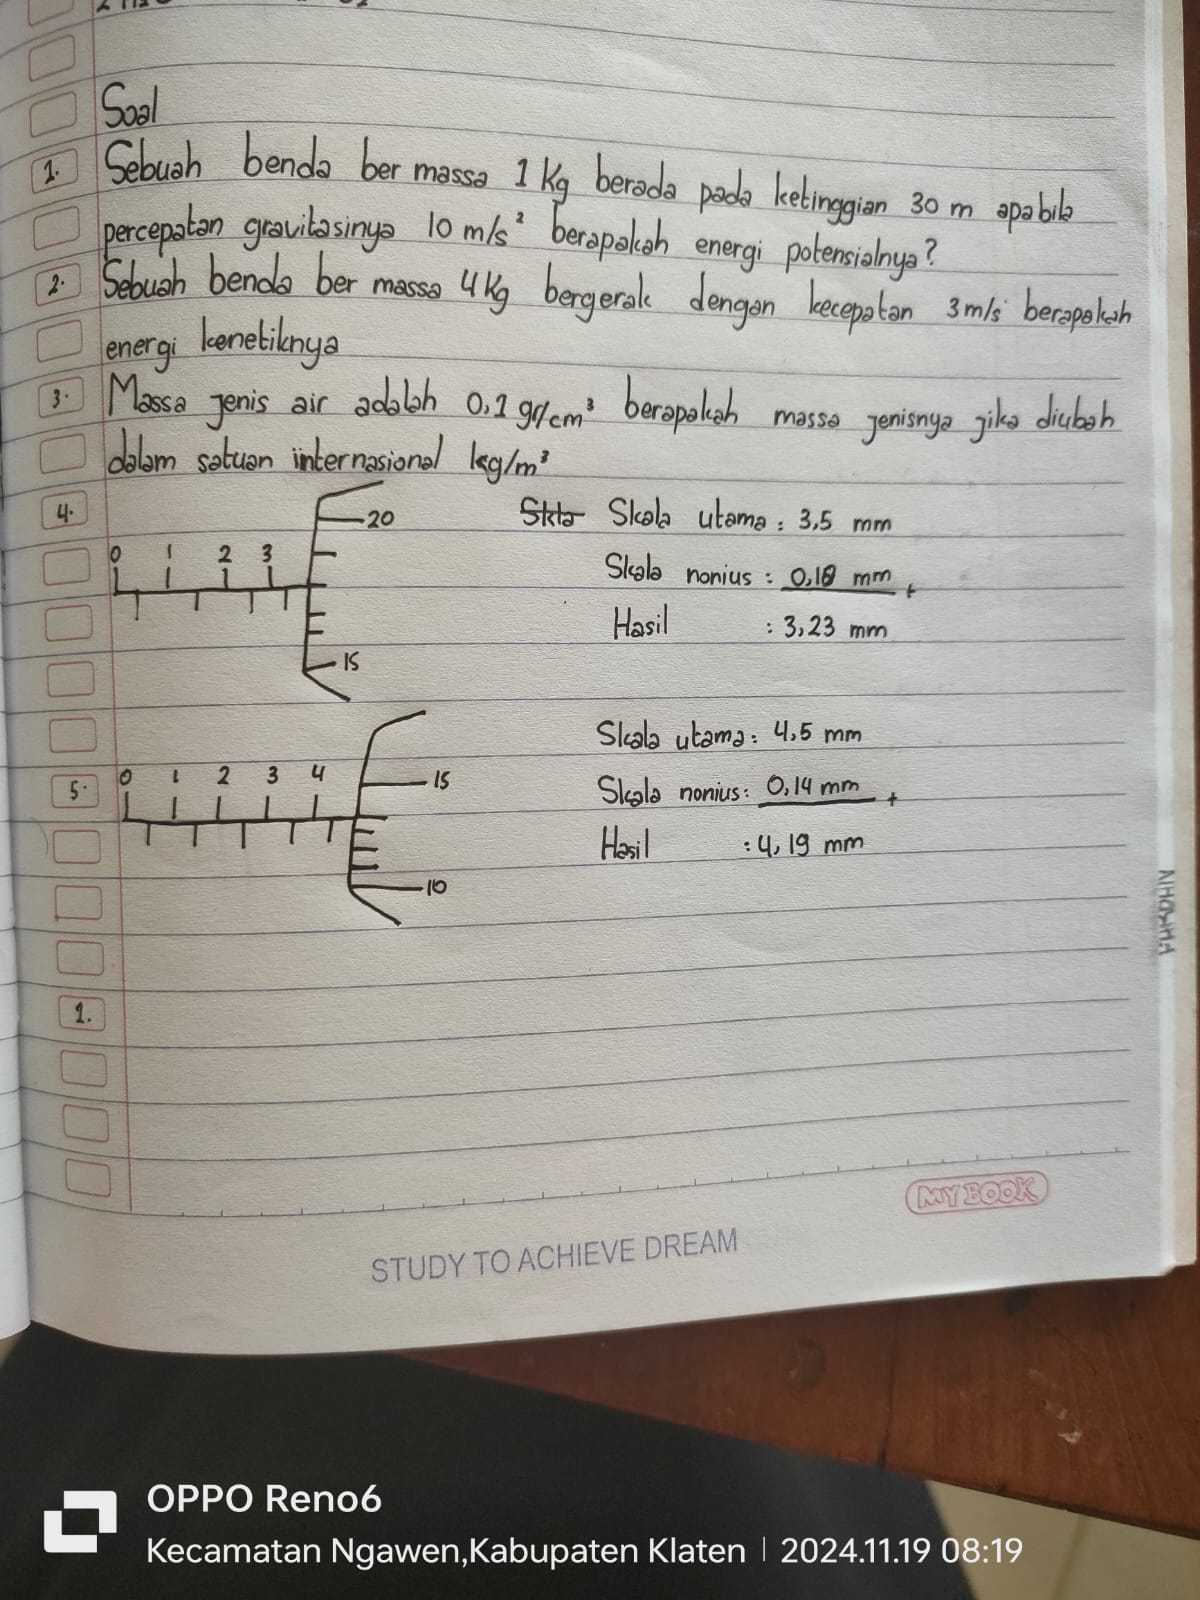 Soal
1. Sebuah benda ber massa 1 Kg berada pada ketinggian 30 m apabila
percepatan gravitasinya 10 m/s² berapakah energi potensialnya?
2. Sebuah benda ber massa 4 Kg bergerak dengan kecepatan 3 m/s berapakah
energi kenetiknya
3. Massa jenis air adalah 0,1 gr/cm³ berapakah massa jenisnya jika diubah
dalam satuan internasional kg/m³
4.
0 1 2 3
20
15
Skla Skala utama : 3,5 mm
Skala nonius : 0,18 mm +
Hasil : 3,23 mm
5.
0 1 2 3 4
15
10
Skala utama : 4,5 mm
Skala nonius : 0,14 mm +
Hasil : 4,19 mm
1.
MY BOOK
STUDY TO ACHIEVE DREAM
OPPO Reno6
Kecamatan Ngawen,Kabupaten Klaten | 2024.11.19 08:19